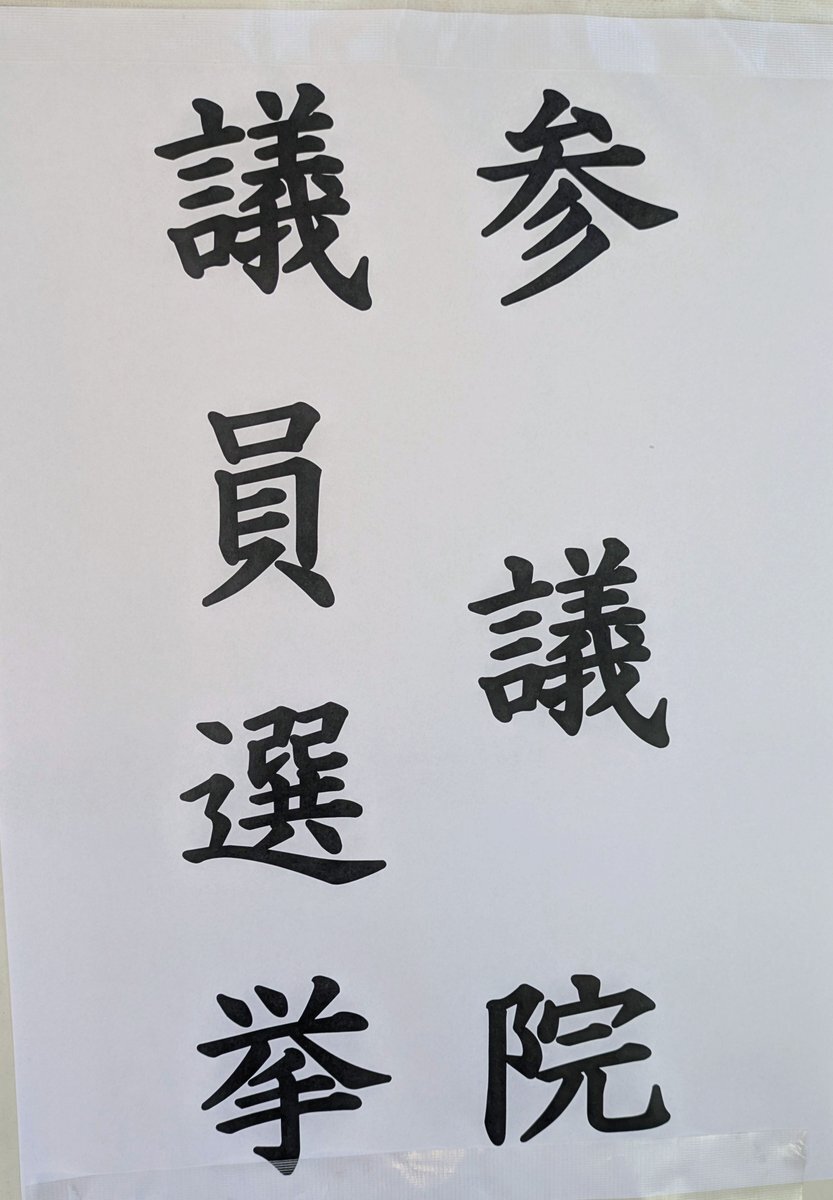 参議院
議員選挙